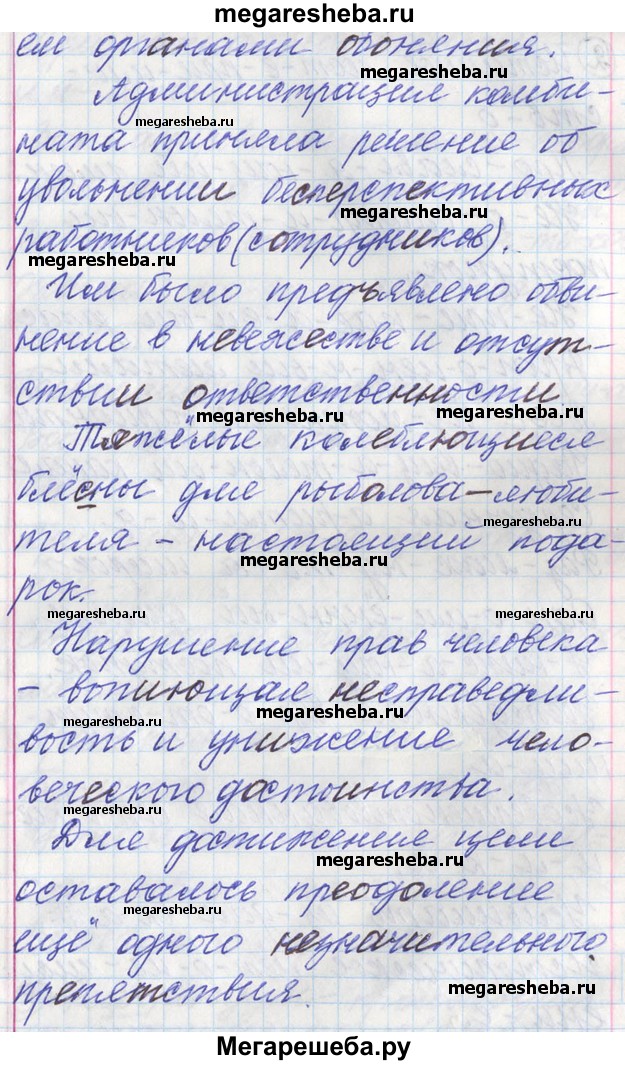 megaresheba.ru
ем органами обоняния.
megaresheba.ru
Администрация комби-
megaresheba.ru
ната приняла решение об
увольнении бесперспективных
megaresheba.ru
работников (сотрудников).
megaresheba.ru
Им было предъявлено обви-
нение в невежестве и отсут-
ствии ответственности.
megaresheba.ru
megaresheba.ru
Тяжёлые колеблющиеся
блёсны для рыболова-люби-
megaresheba.ru
теля - настоящий пода-
megaresheba.ru
рок.
megaresheba.ru
Нарушение прав человека
- вопиющая несправедли-
megaresheba.ru
megaresheba.ru
вость и унижение чело-
веческого достоинства.
megaresheba.ru
Для достижение цели
megaresheba.ru
оставалось преодоление
megaresheba.ru
ещё одного незначительного
препятствия.
megaresheba.ru
Мегарешеба.ру